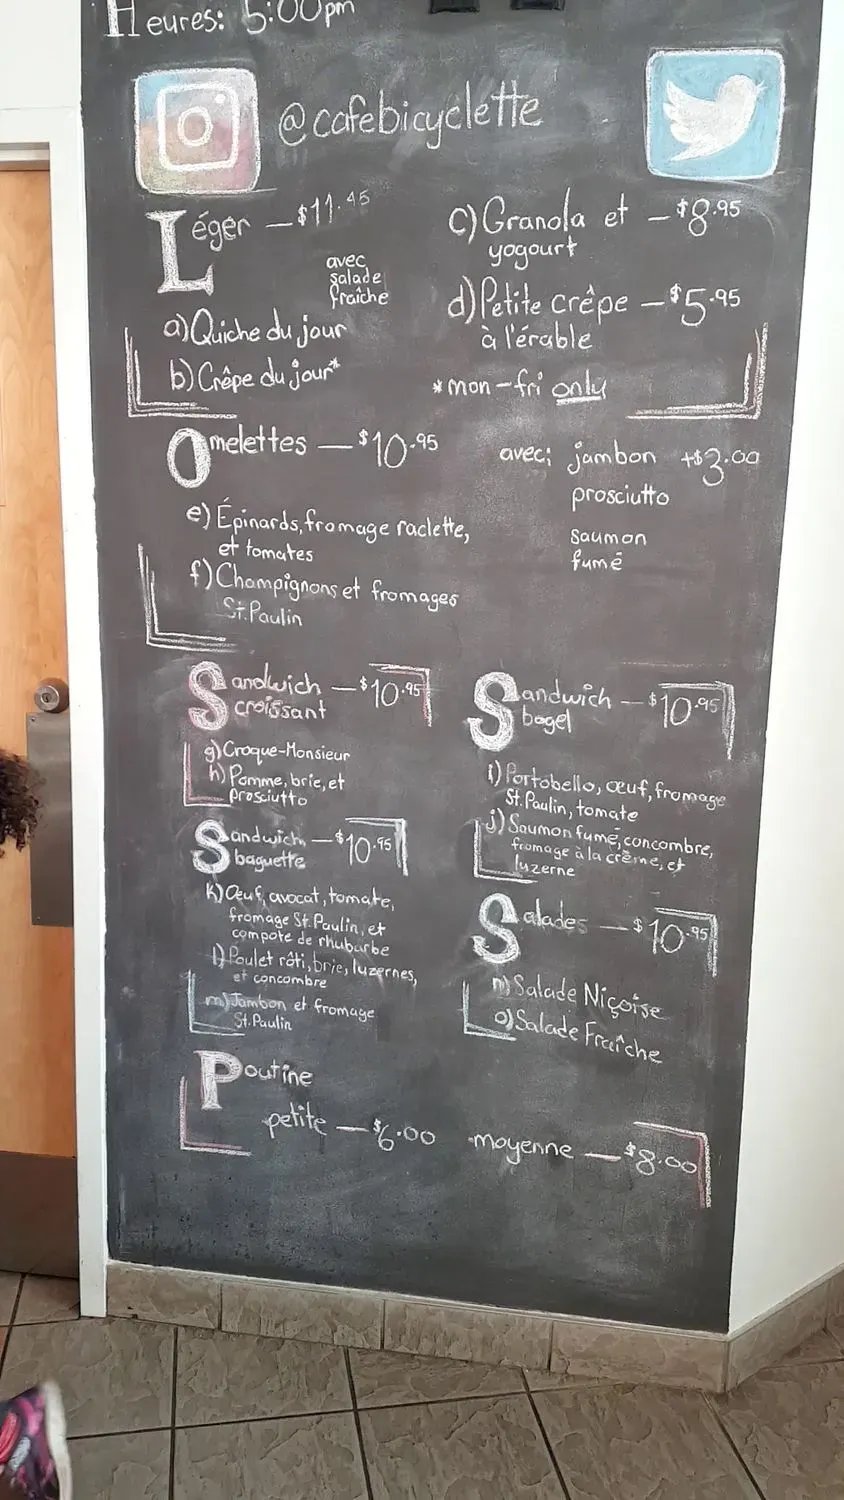 Heures: 5:00pm
@cafebicyclette
Léger — $11.45
avec
salade
fraîche
a) Quiche du jour
b) Crêpe du jour*
c) Granola et — $8.95
yogourt
d) Petite crêpe — $5.95
à l'érable
*mon-fri only
Omelettes — $10.95
avec; jambon +$3.00
prosciutto
saumon
fumé
e) Épinards, fromage raclette,
et tomates
f) Champignons et fromages
St.Paulin
Sandwich — $10.95
croissant
g) Croque-Monsieur
h) Pomme, brie, et
prosciutto
Sandwich — $10.95
bagel
i) Portobello, œuf, fromage
St.Paulin, tomate
j) Saumon fumé, concombre,
fromage à la crème, et
luzerne
Sandwich — $10.95
baguette
k) Œuf, avocat, tomate,
fromage St.Paulin, et
compote de rhubarbe
l) Poulet rôti, brie, luzernes,
et concombre
m) Jambon et fromage
St.Paulin
Salades — $10.95
n) Salade Niçoise
o) Salade Fraîche
Poutine
petite — $6.00 moyenne — $8.00